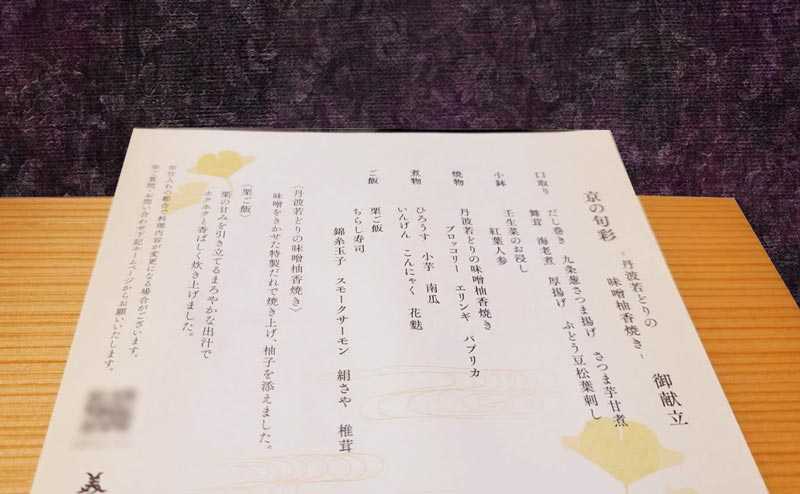 京の旬彩 -丹波若どりの
味噌柚香焼き-
御献立
口取り だし巻き 九条葱さつま揚げ さつま芋甘煮
舞茸 海老煮 厚揚げ ぶどう豆松葉刺し
小鉢 壬生菜のお浸し
紅葉人参
焼物 丹波若どりの味噌柚香焼き
ブロッコリー エリンギ パプリカ
煮物 ひろうす 小芋 南瓜
いんげん こんにゃく 花麩
ご飯 栗ご飯
ちらし寿司
錦糸玉子 スモークサーモン 絹さや 椎茸
〈丹波若どりの味噌柚香焼き〉
味噌をきかせた特製だれで焼き上げ、柚子を添えました。
〈栗ご飯〉
栗の甘みを引き立てるまろやかな出汁で
ホクホクと香ばしく炊き上げました。
※仕入れの都合で料理内容が変更になる場合がございます。
※ご質問、お問い合わせ下記ホームページからお願いいたします。